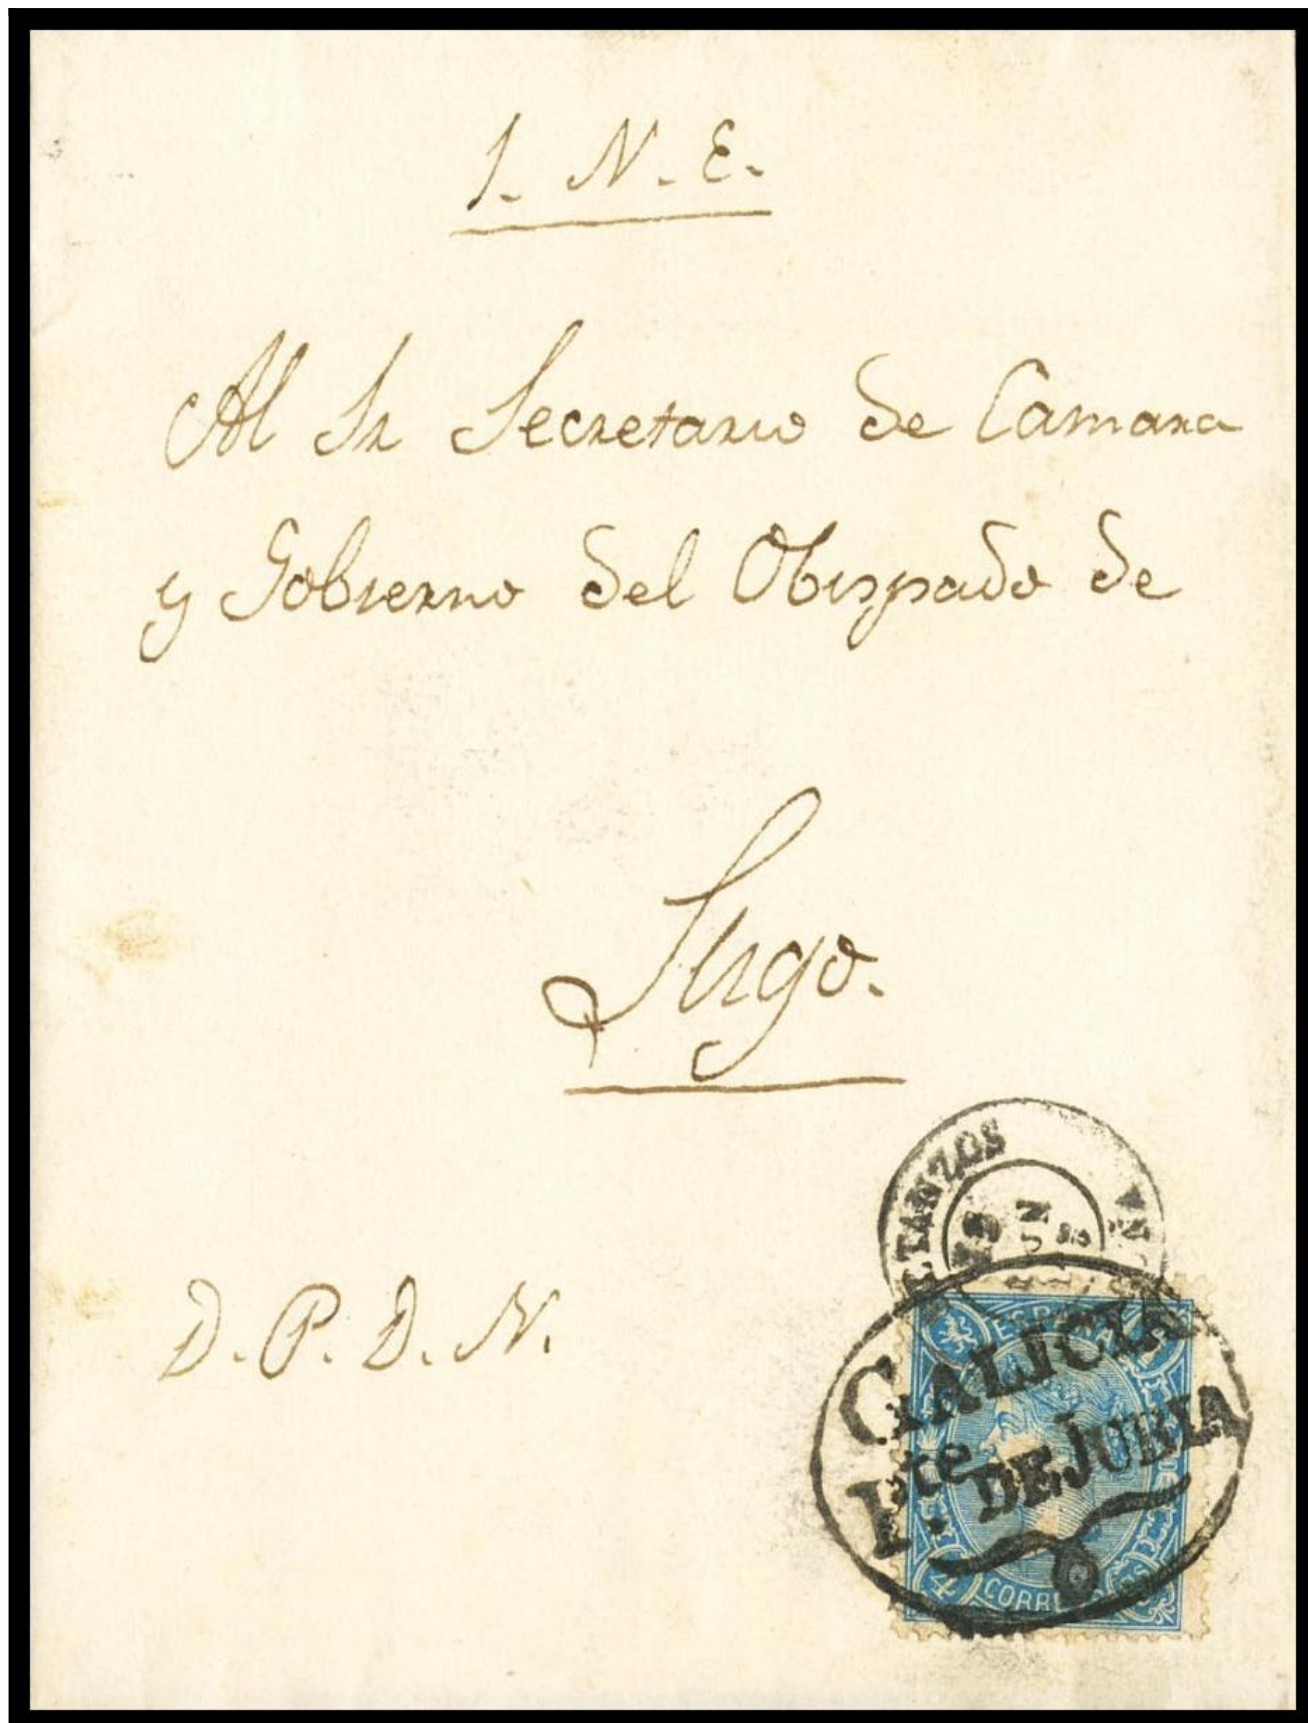 I. N. E.
Al Sr Secretario de Camara
y Gobierno del Obispado de
Lugo.
D. P. D. N.
ESPAÑA
GALICIA
Pte. DE JUBIA
4
CORREOS